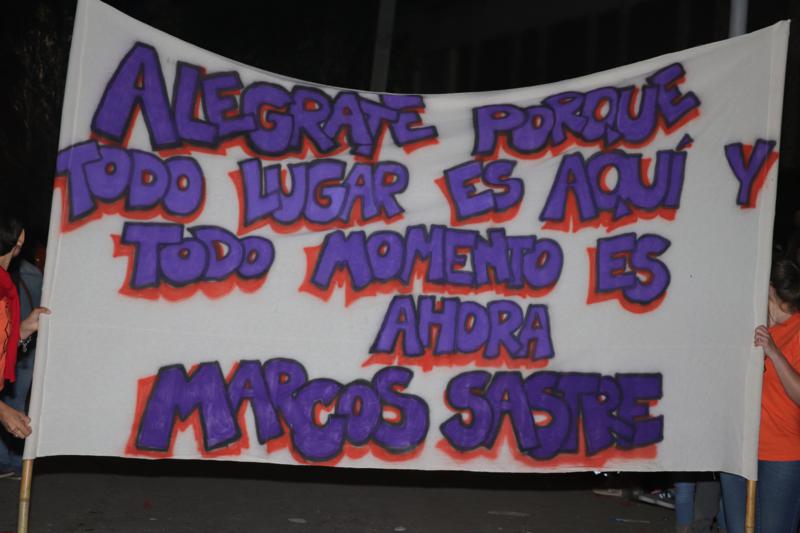 ALEGRATE PORQUE
TODO LUGAR ES AQUÍ Y
TODO MOMENTO ES
AHORA
MARCOS SASTRE